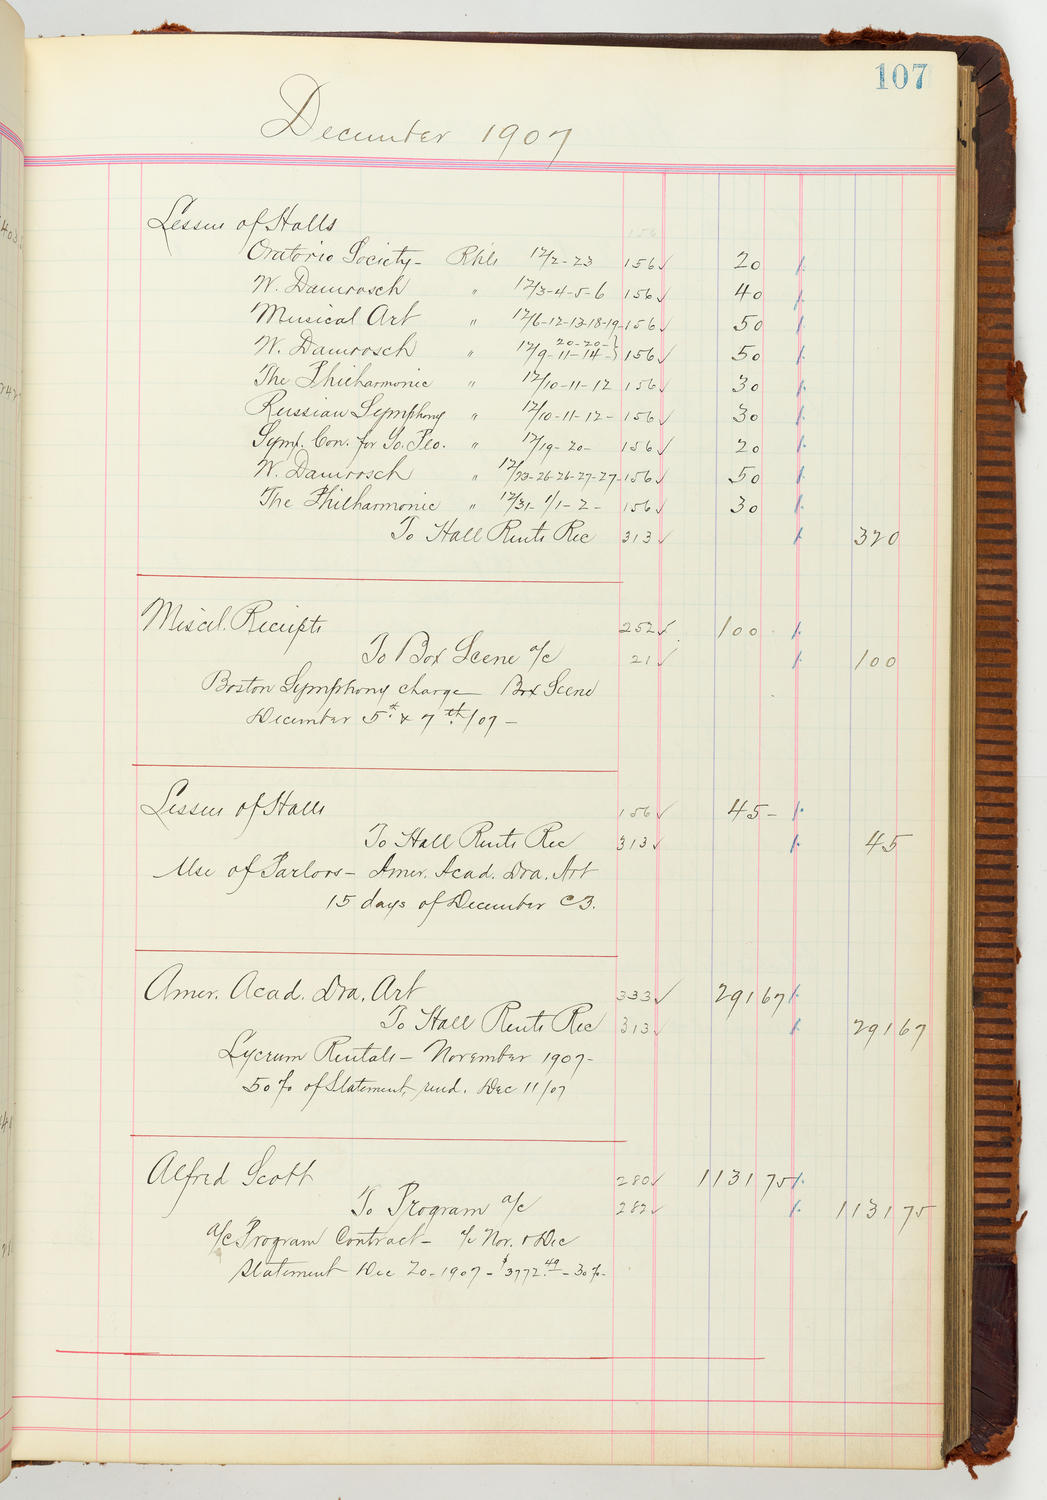 107
December 1907
Lessees of Halls
Oratorio Society - Rhls 12/2-23 156 ✓ 20
W. Damrosch " 12/3-4-5-6 156 ✓ 40
Musical Art " 12/6-12-13-18-19- 156 ✓ 50
W. Damrosch " 12/9-11-14- 20-20- } 156 ✓ 50
The Philharmonic " 12/10-11-12 156 ✓ 30
Russian Symphony " 12/10-11-12- 156 ✓ 30
Symp. Con. for Yo. Peo. " 12/19-20- 156 ✓ 20
W. Damrosch " 12/23-26-26-27-27- 156 ✓ 50
The Philharmonic " 12/31- 1/1-2- 156 ✓ 30
To Hall Rents Rec 313 ✓ 320
Miscel. Receipts 252 ✓ 100
To Box Scene a/c 21 ✓ 100
Boston Symphony charge Box Scene
December 5th & 7th/07 -
Lessees of Halls 156 ✓ 45-
To Hall Rents Rec 313 ✓ 45
Use of Parlors - Amer. Acad. Dra. Art
15 days of December @ 3.
Amer. Acad. Dra. Art 333 ✓ 291 67
To Hall Rents Rec 313 ✓ 291 67
Lyceum Rentals - November 1907-
50% of Statement, rend. Dec 11/07
Alfred Scott 280 ✓ 1131 75
To Program a/c 282 ✓ 1131 75
a/c Program Contract - a/c Nov. & Dec
Statement Dec 20-1907 - $3772.49 - 30%-